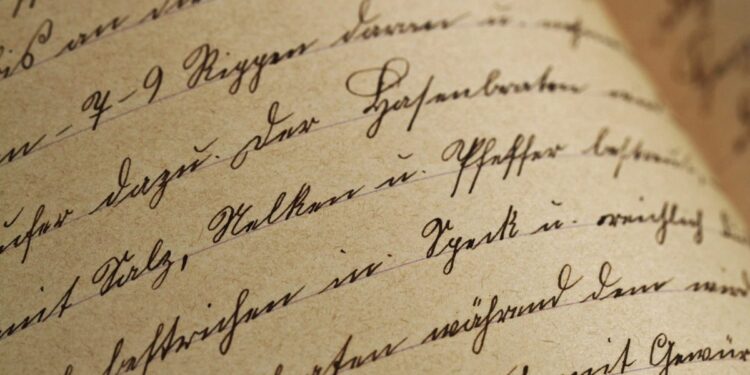 bis an di
7-9 Rippen daran u.
dazu. Der Hasenbraten
mit Salz, Nelken u. Pfeffer bestreu
bestrichen in Speck u. reichlich
während dem wird
mit Gewür